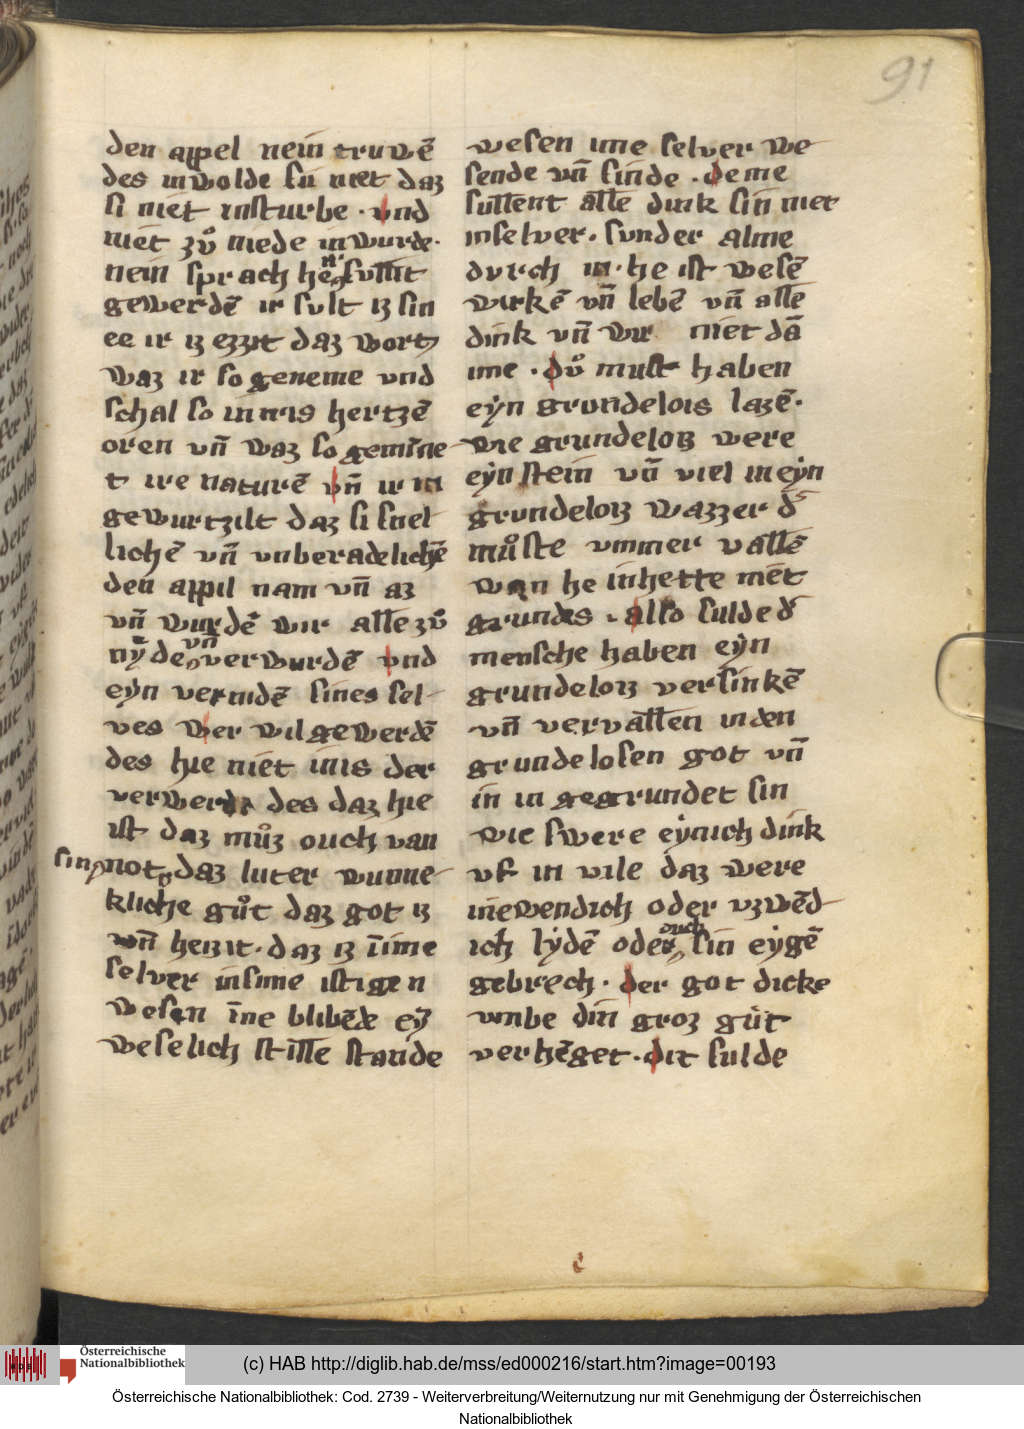 91
den appel nein truwē
des inwolde sů niet daz
si niet insturbe · vnd
niet zů niede inwurde·
nein sprach he nˢ sullıt
gewerdē ir sult iz sin
ee ir iz ezzit daz wort
waz ir so geneme vnd
schal so in uris hertzē
oren vñ waz so gemīne
t ure naturē vñ ir in
gewurtzilt daz si snel
lichē vñ vnberadelichē
den appil nam vñ az
vñ wurdē wir alle zů
nÿde vñ verwurdē vnd
eyn vernidē sines sel-
ves wer wil gewerdē
des hie niet inis der
verwerde des daz hie
ist daz můz ouch van
sin not daz luter wunne-
kliche gůt daz got iz
vñ heizit · daz iz īnime
selver insime istigen
wesen īne blibēde eÿ
weselich stille stande
wesen ime selver we-
sende vñ sinde · deme
sullent alle dink sin niet
inselver · sunder alme
durch in · he ist wesē
wirkē vñ lebē vñ alle
dink vñ wir niet dā
ime · dů must haben
eyn grundelois lazē·
wie grundeloiz were
eÿn stein vñ viel in eÿn
grundeloiz wazzer dˢ
můste vmmer vallē
wan he inhette niet
grundes · also sulde dˢ
mensche haben eÿn
grundeloiz versinkē
vñ vervallen in den
grundelosen got vñ
in in gegrundet sin
wie swere eÿnich dink
vf in vile daz were
inewendich oder vzwēd-
ich lÿdē oder ouch sin eÿgē
gebrech · der got dicke
vmbe din groz gůt
verhēget · dit sulde
c
Österreichische
Nationalbibliothek
(c) HAB http://diglib.hab.de/mss/ed000216/start.htm?image=00193
Österreichische Nationalbibliothek: Cod. 2739 - Weiterverbreitung/Weiternutzung nur mit Genehmigung der Österreichischen
Nationalbibliothek